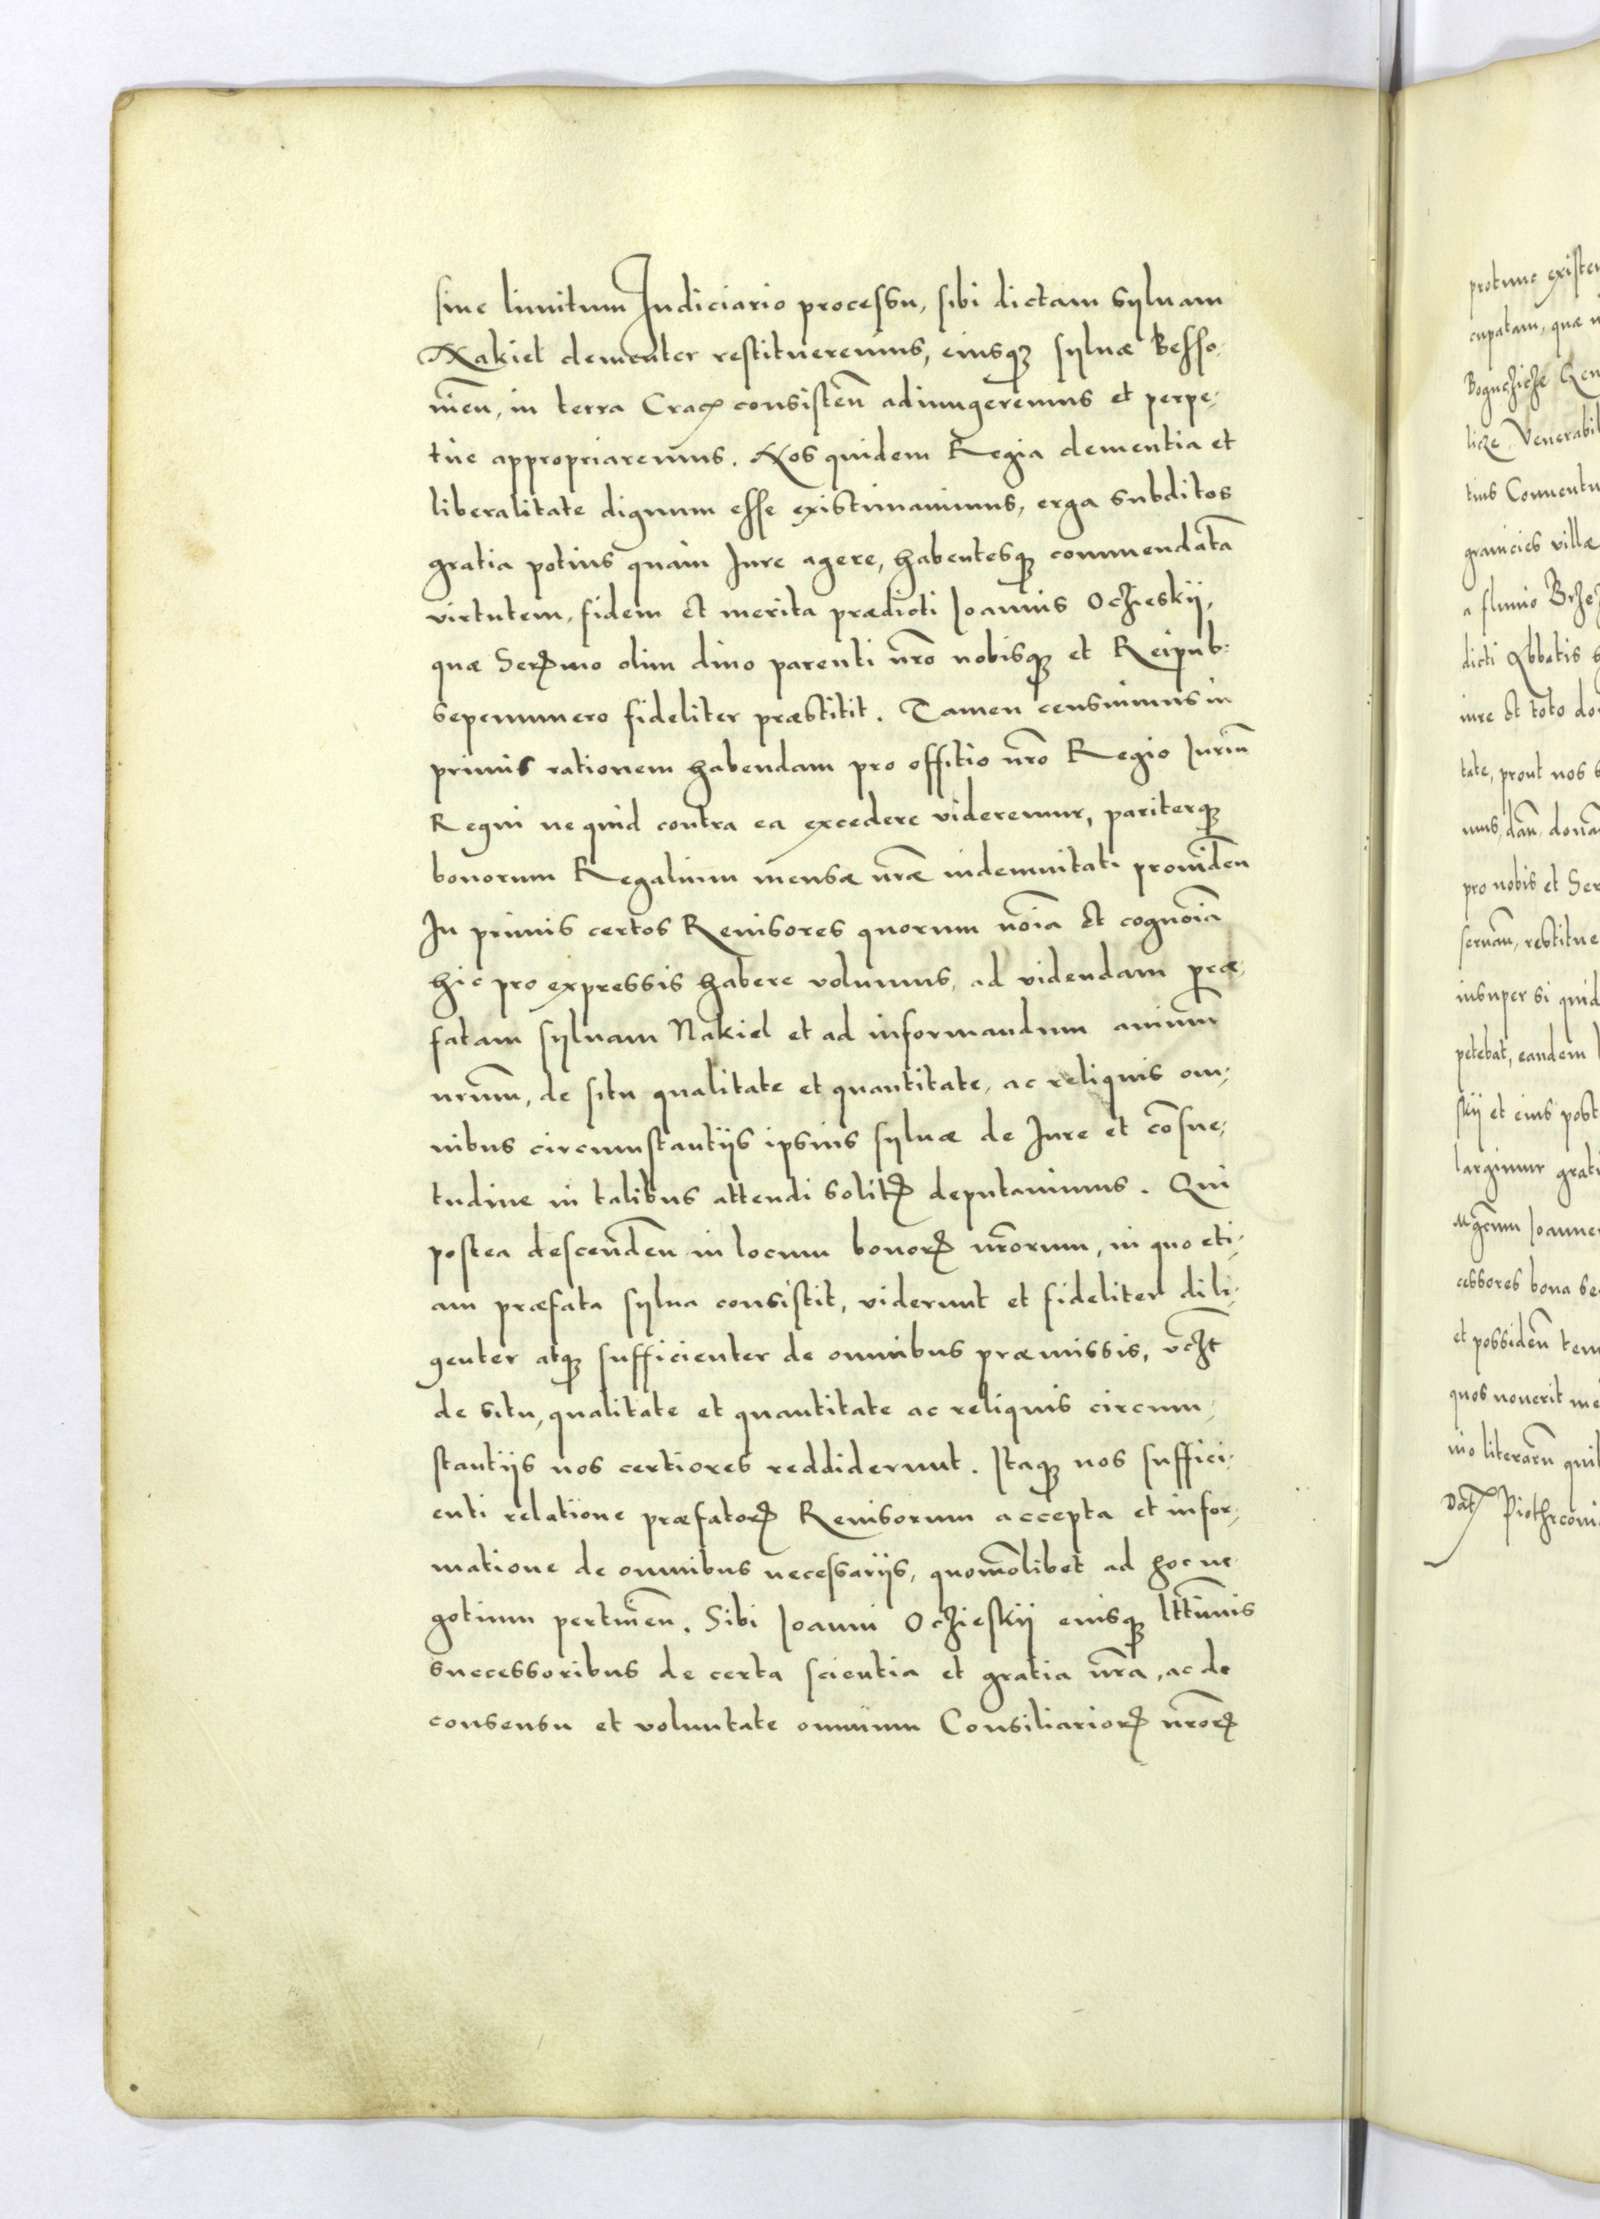 sine limitum Judiciario processu, sibi dictam sylvam
Nakiel clementer restitueremus, eiusq̃ sylvæ Besso,
nień, in terra Crac̃ consisteñ adiungeremus et perpe,
tue appropriaremus. Nos quidem Regia clementia et
liberalitate dignum esse existimavimus, erga subditos
gratia potius quam Jure agere, habentesq̃ commendatã
virtutem, fidem et merita prædicti Joannis Oczieskij,
quæ Serẽmo olim divo parenti nr̃o nobisq̃ et Reipub:
sepenumero fideliter præstitit. Tamen censuimus in
primis rationem habendam pro offitio nr̃o Regio Juriũ
Regni ne quid contra ea excedere videremur, pariterq̃
bonorum Regalium mensæ nr̃æ indemnitati providen̄
In primis certos Revisores quorum nõia et cognõia
hic pro expressis habere volumus, ad videndam præ,
fatam sylvam Nakiel et ad informandum animũ
nrũm, de situ qualitate et quantitate, ac reliquis om,
nibus circumstantijs ipsius sylvæ de Jure et cõsue,
tudine in talibus attendi solitꝝ deputavimus. Qui
postea descendeñ in locum bonorꝝ nr̃orum, in quo eti,
am præfata sylva consistit, viderunt et fideliter dili,
genter atq̃ sufficienter de omnibus præmissis, vc̃zt
de situ, qualitate et quantitate ac reliquis circum,
stantijs nos certiores reddiderunt. Itaq̃ nos suffici,
enti relatione præfatorꝝ Revisorum accepta et infor,
matione de omnibus necessarijs, quomõlibet ad hoc ne
gotium pertineñ. Sibi Joanni Oczieskij eiusq̃ lttimis
successoribus de certa scientia et gratia nr̃a, ac de
consensu et voluntate omnium Consiliariorꝝ nr̃orꝝ
protunc
cupatam, quæ
licze Venerabil
tius Conventu
granicies villæ
a fluvio
dicti Abbatis
iure et toto
tate, prout nos
mus, dañ, donañ
pro nobis et Ser
servañ, restitue
insuper si quid
petebat, eandem
skij et eius post
largimur grati
Mgc̃um Joannem
cessores bona
et possideñ
quos noverit
nio literarũ quib
Dat̃ Piothrcovi